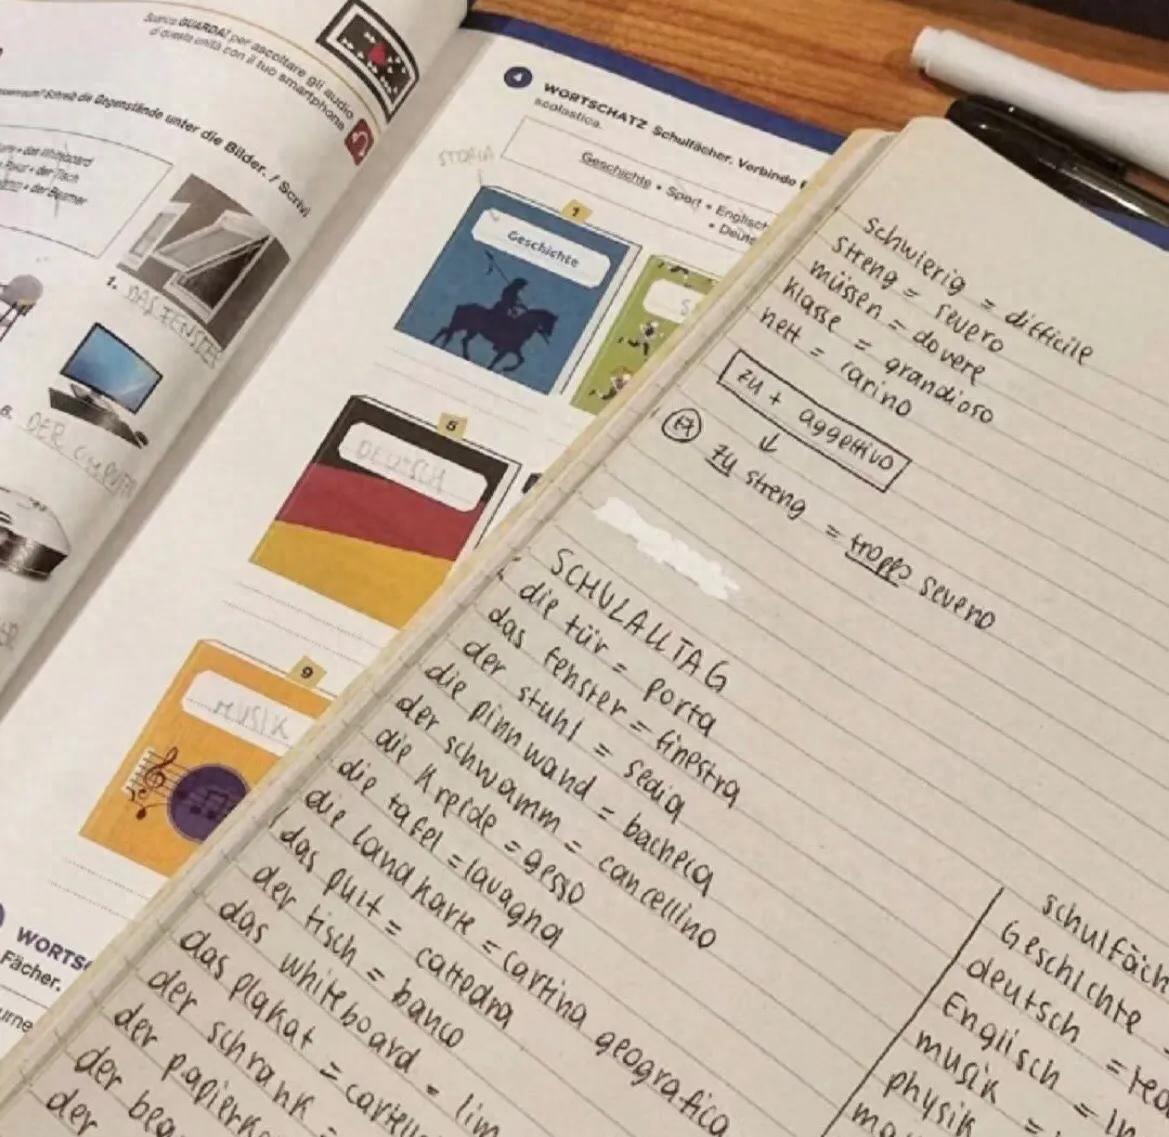 Scarica GUARDA! per ascoltare gli audio
di questa unità con il tuo smartphone
Schreib die Gegenstände unter die Bilder. / Scrivi
das Whiteboard
der Tisch
der Beamer
1. DAS FENSTER
DER COMPUTER
4 WORTSCHATZ Schulfächer. Verbinde
scolastica.
Geschichte • Sport • Englisch
STORIA
1
Geschichte
5
DEUTSCH
9
MUSIK
Fächer.
schwierig = difficile
streng = severo
müssen = dovere
klasse = grandioso
nett = carino
zu + aggettivo
↓
zu streng = troppo severo
SCHULALLTAG
die tür = porta
das fenster = finestra
der stuhl = sedia
die pinnwand = bacheca
der schwamm = cancellino
die kreide = gesso
die tafel = lavagna
die landkarte = cartina geografica
das pult = cattedra
der tisch = banco
das whiteboard = lim
das plakat =
der schrank =
der
der
der
Geschichte =
deutsch =
Englisch =
musik =
physik